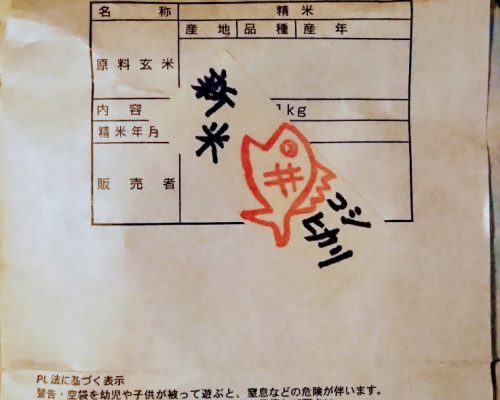 名 称 精 米
産 地 品 種 産 年
原料玄米
内 容 1kg
精米年月
販 売 者
新米
井
コシ
ヒカリ
PL法に基づく表示
警告・空袋を幼児や子供が被って遊ぶと、窒息などの危険が伴います。